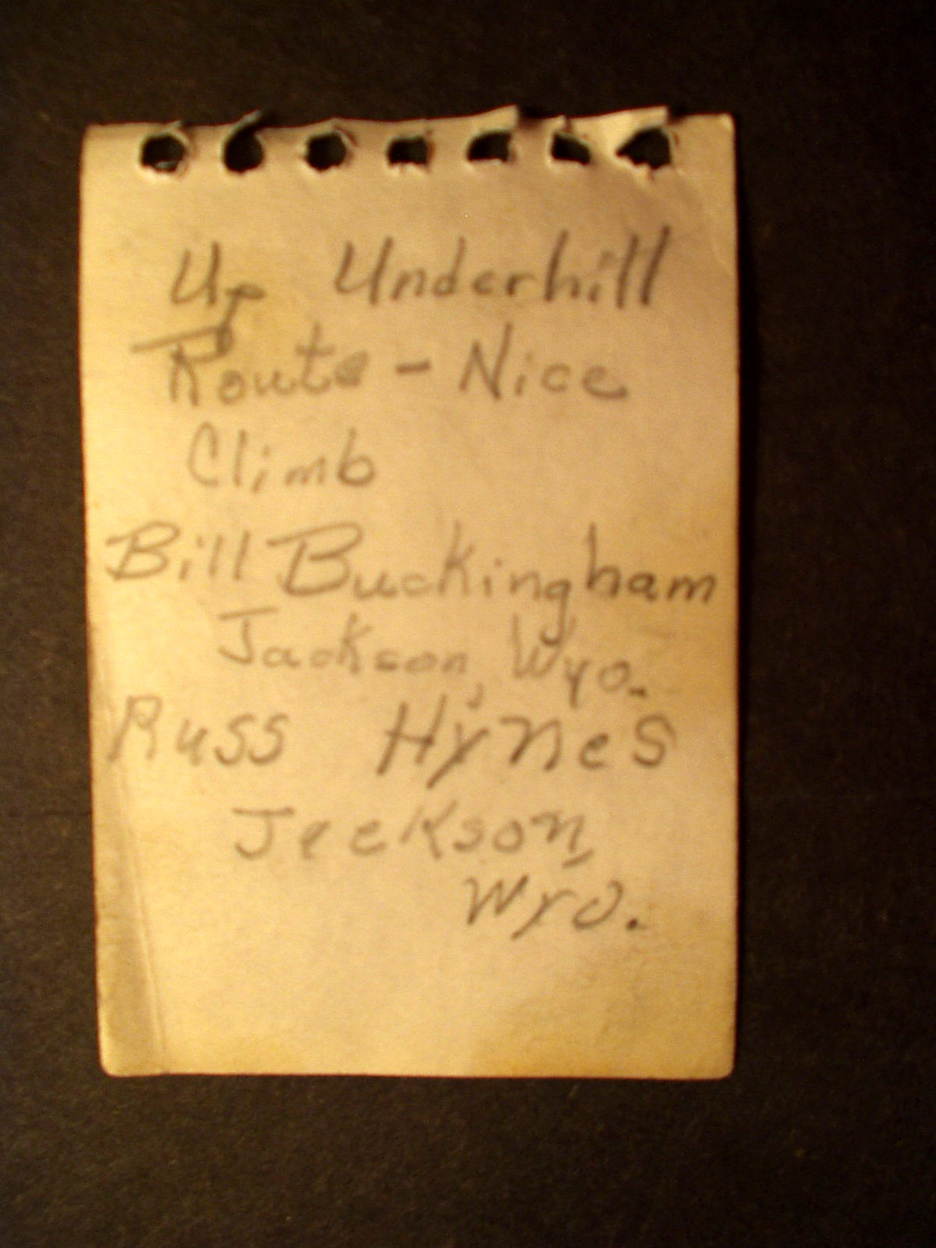 Up Underhill
Route - Nice
Climb
Bill Buckingham
Jackson, Wyo.
Russ Hynes
Jackson,
Wyo.